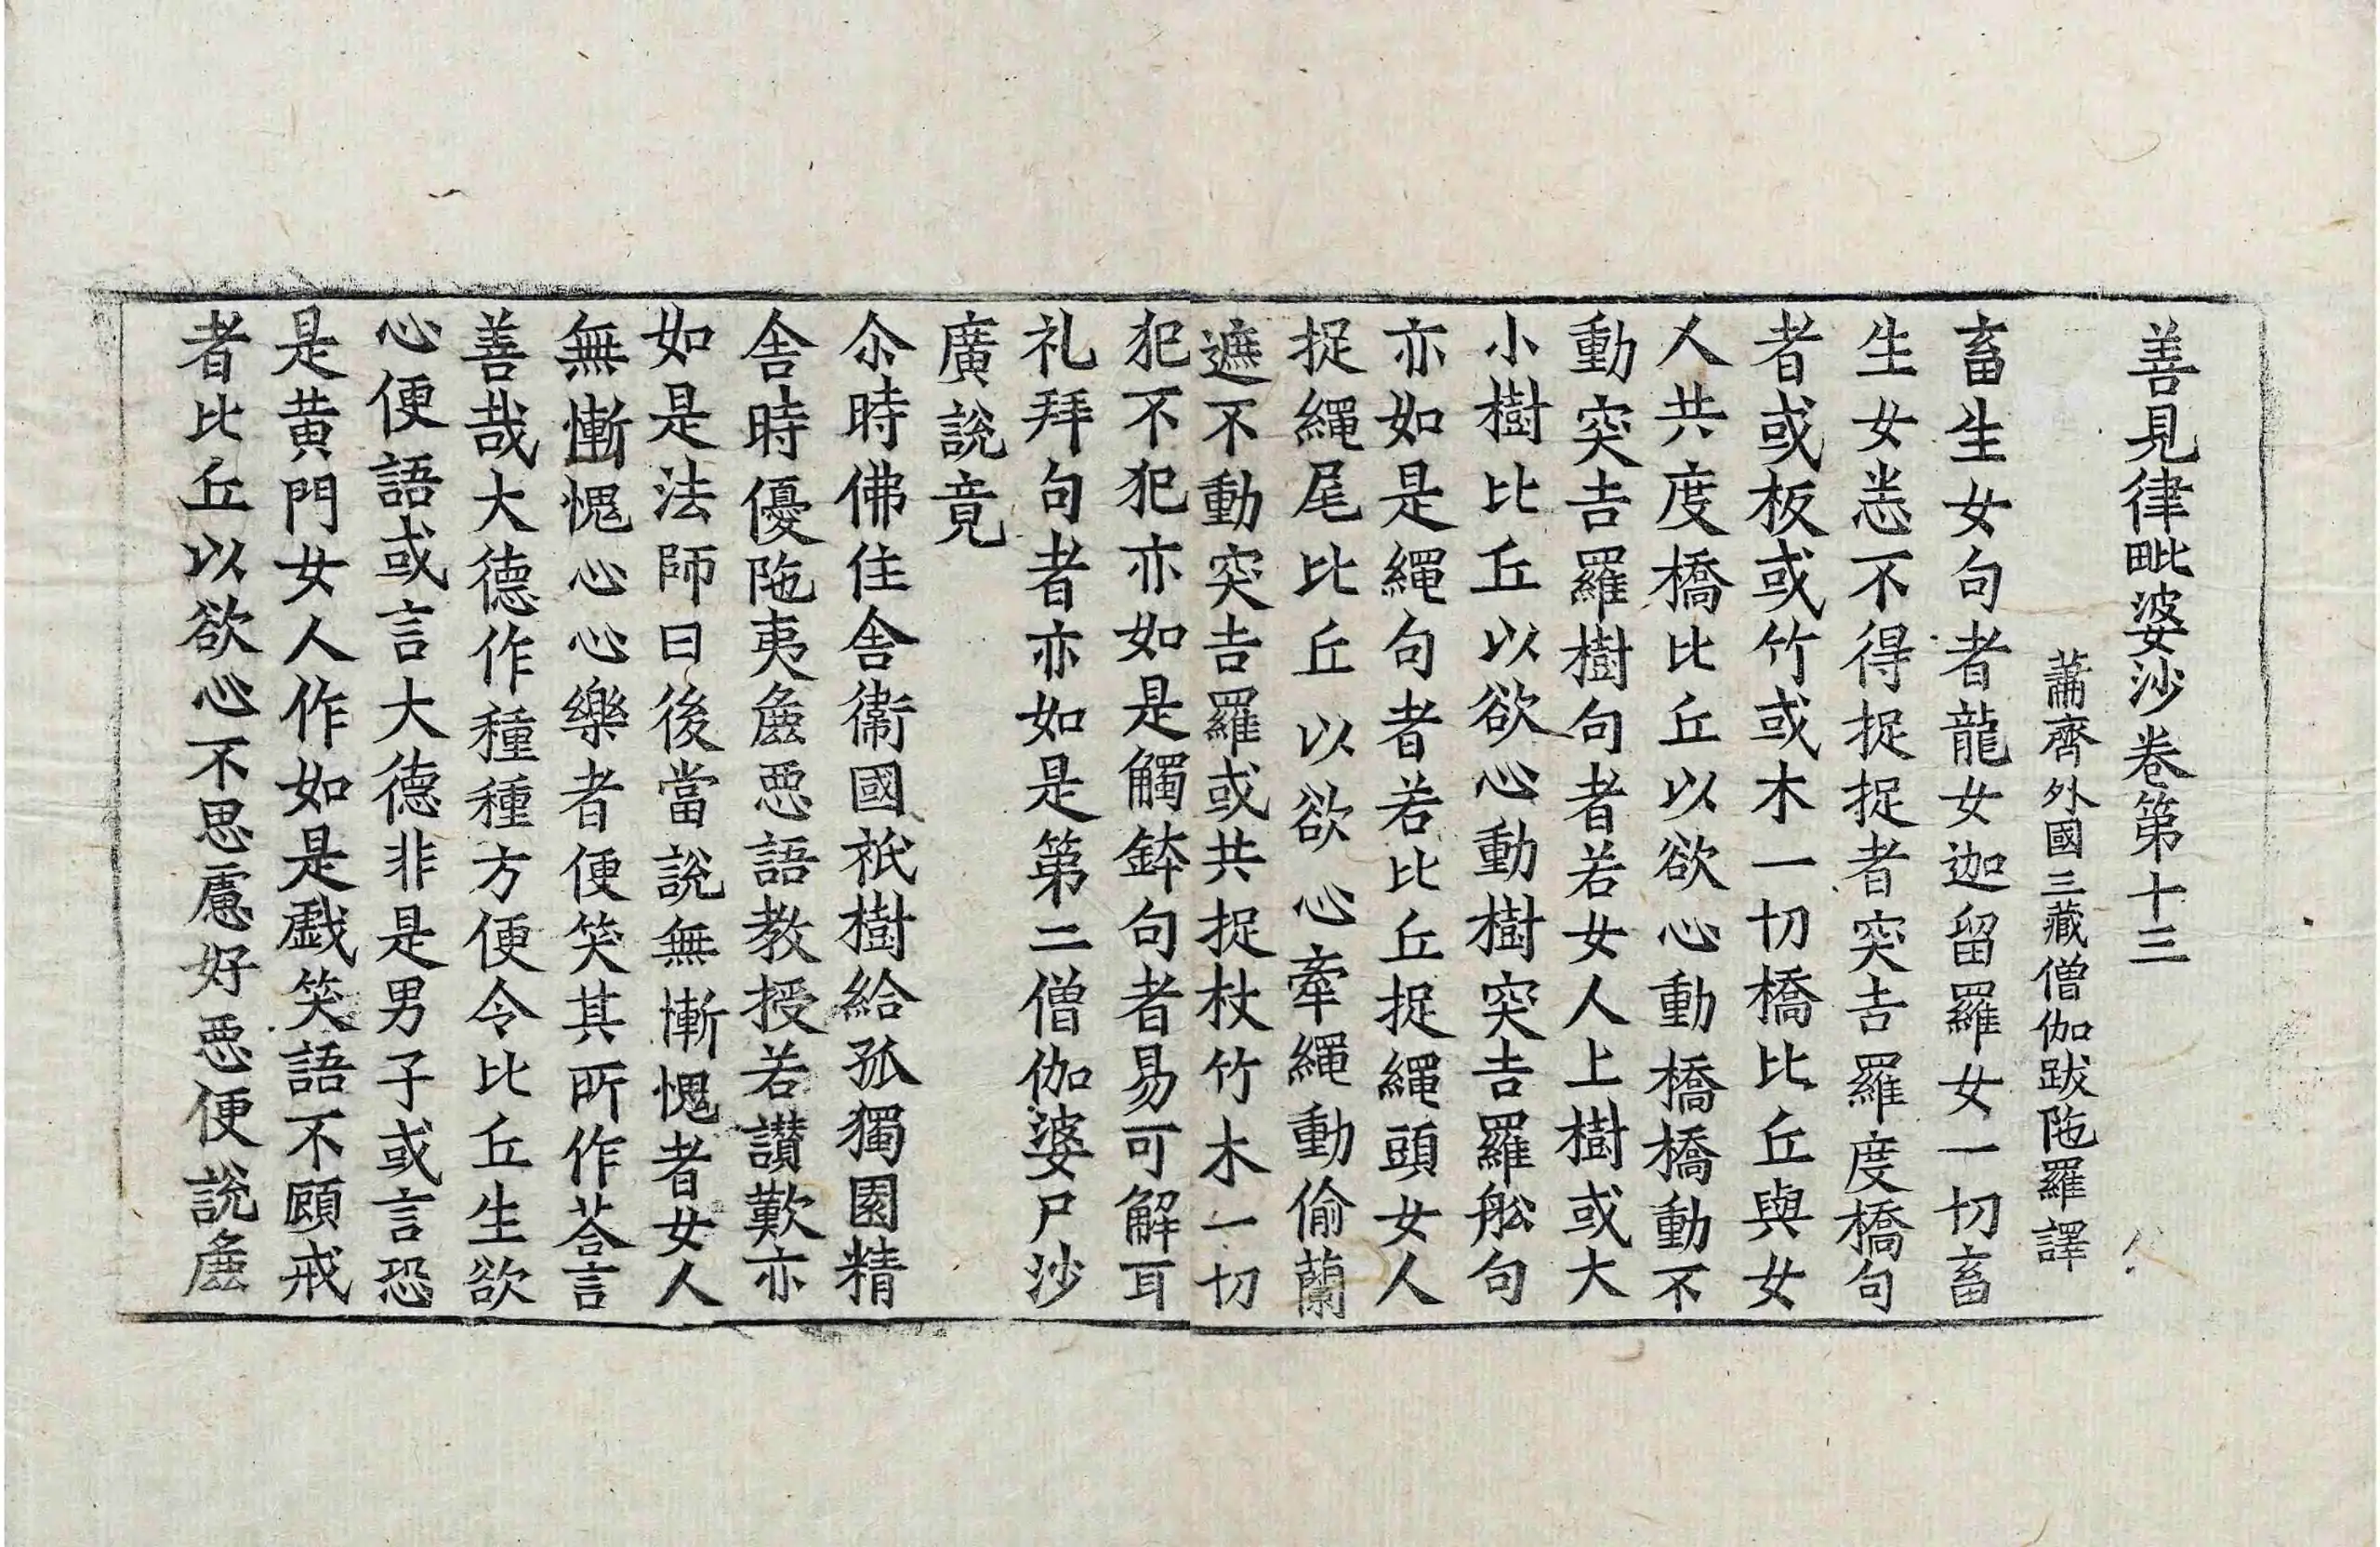 善見律毗婆沙卷第十三
蕭齊外國三藏僧伽跋陁羅譯
畜生女句者龍女迦留羅女一切畜
生女恙不得捉捉者突吉羅度橋句
者或板或竹或木一切橋比丘與女
人共度橋比丘以欲心動橋橋動不
動突吉羅樹句者若女人上樹或大
小樹比丘以欲心動樹突吉羅舩句
亦如是繩句者若比丘捉繩頭女人
捉繩尾比丘以欲心牽繩動偷蘭
遮不動突吉羅或共捉杖竹木一切
犯不犯亦如是觸鉢句者易可解耳
礼拜句者亦如是第二僧伽婆尸沙
廣說竟
尒時佛住舍衞國祇樹給孤獨園精
舍時優陁夷麁惡語教授若讃歎亦
如是法師曰後當說無慚愧者女人
無慚愧心心樂者便笑其所作荅言
善哉大德作種種方便令比丘生欲
心便語或言大德非是男子或言恐
是黃門女人作如是戱笑語不顧戒
者比丘以欲心不思慮好惡便說麁